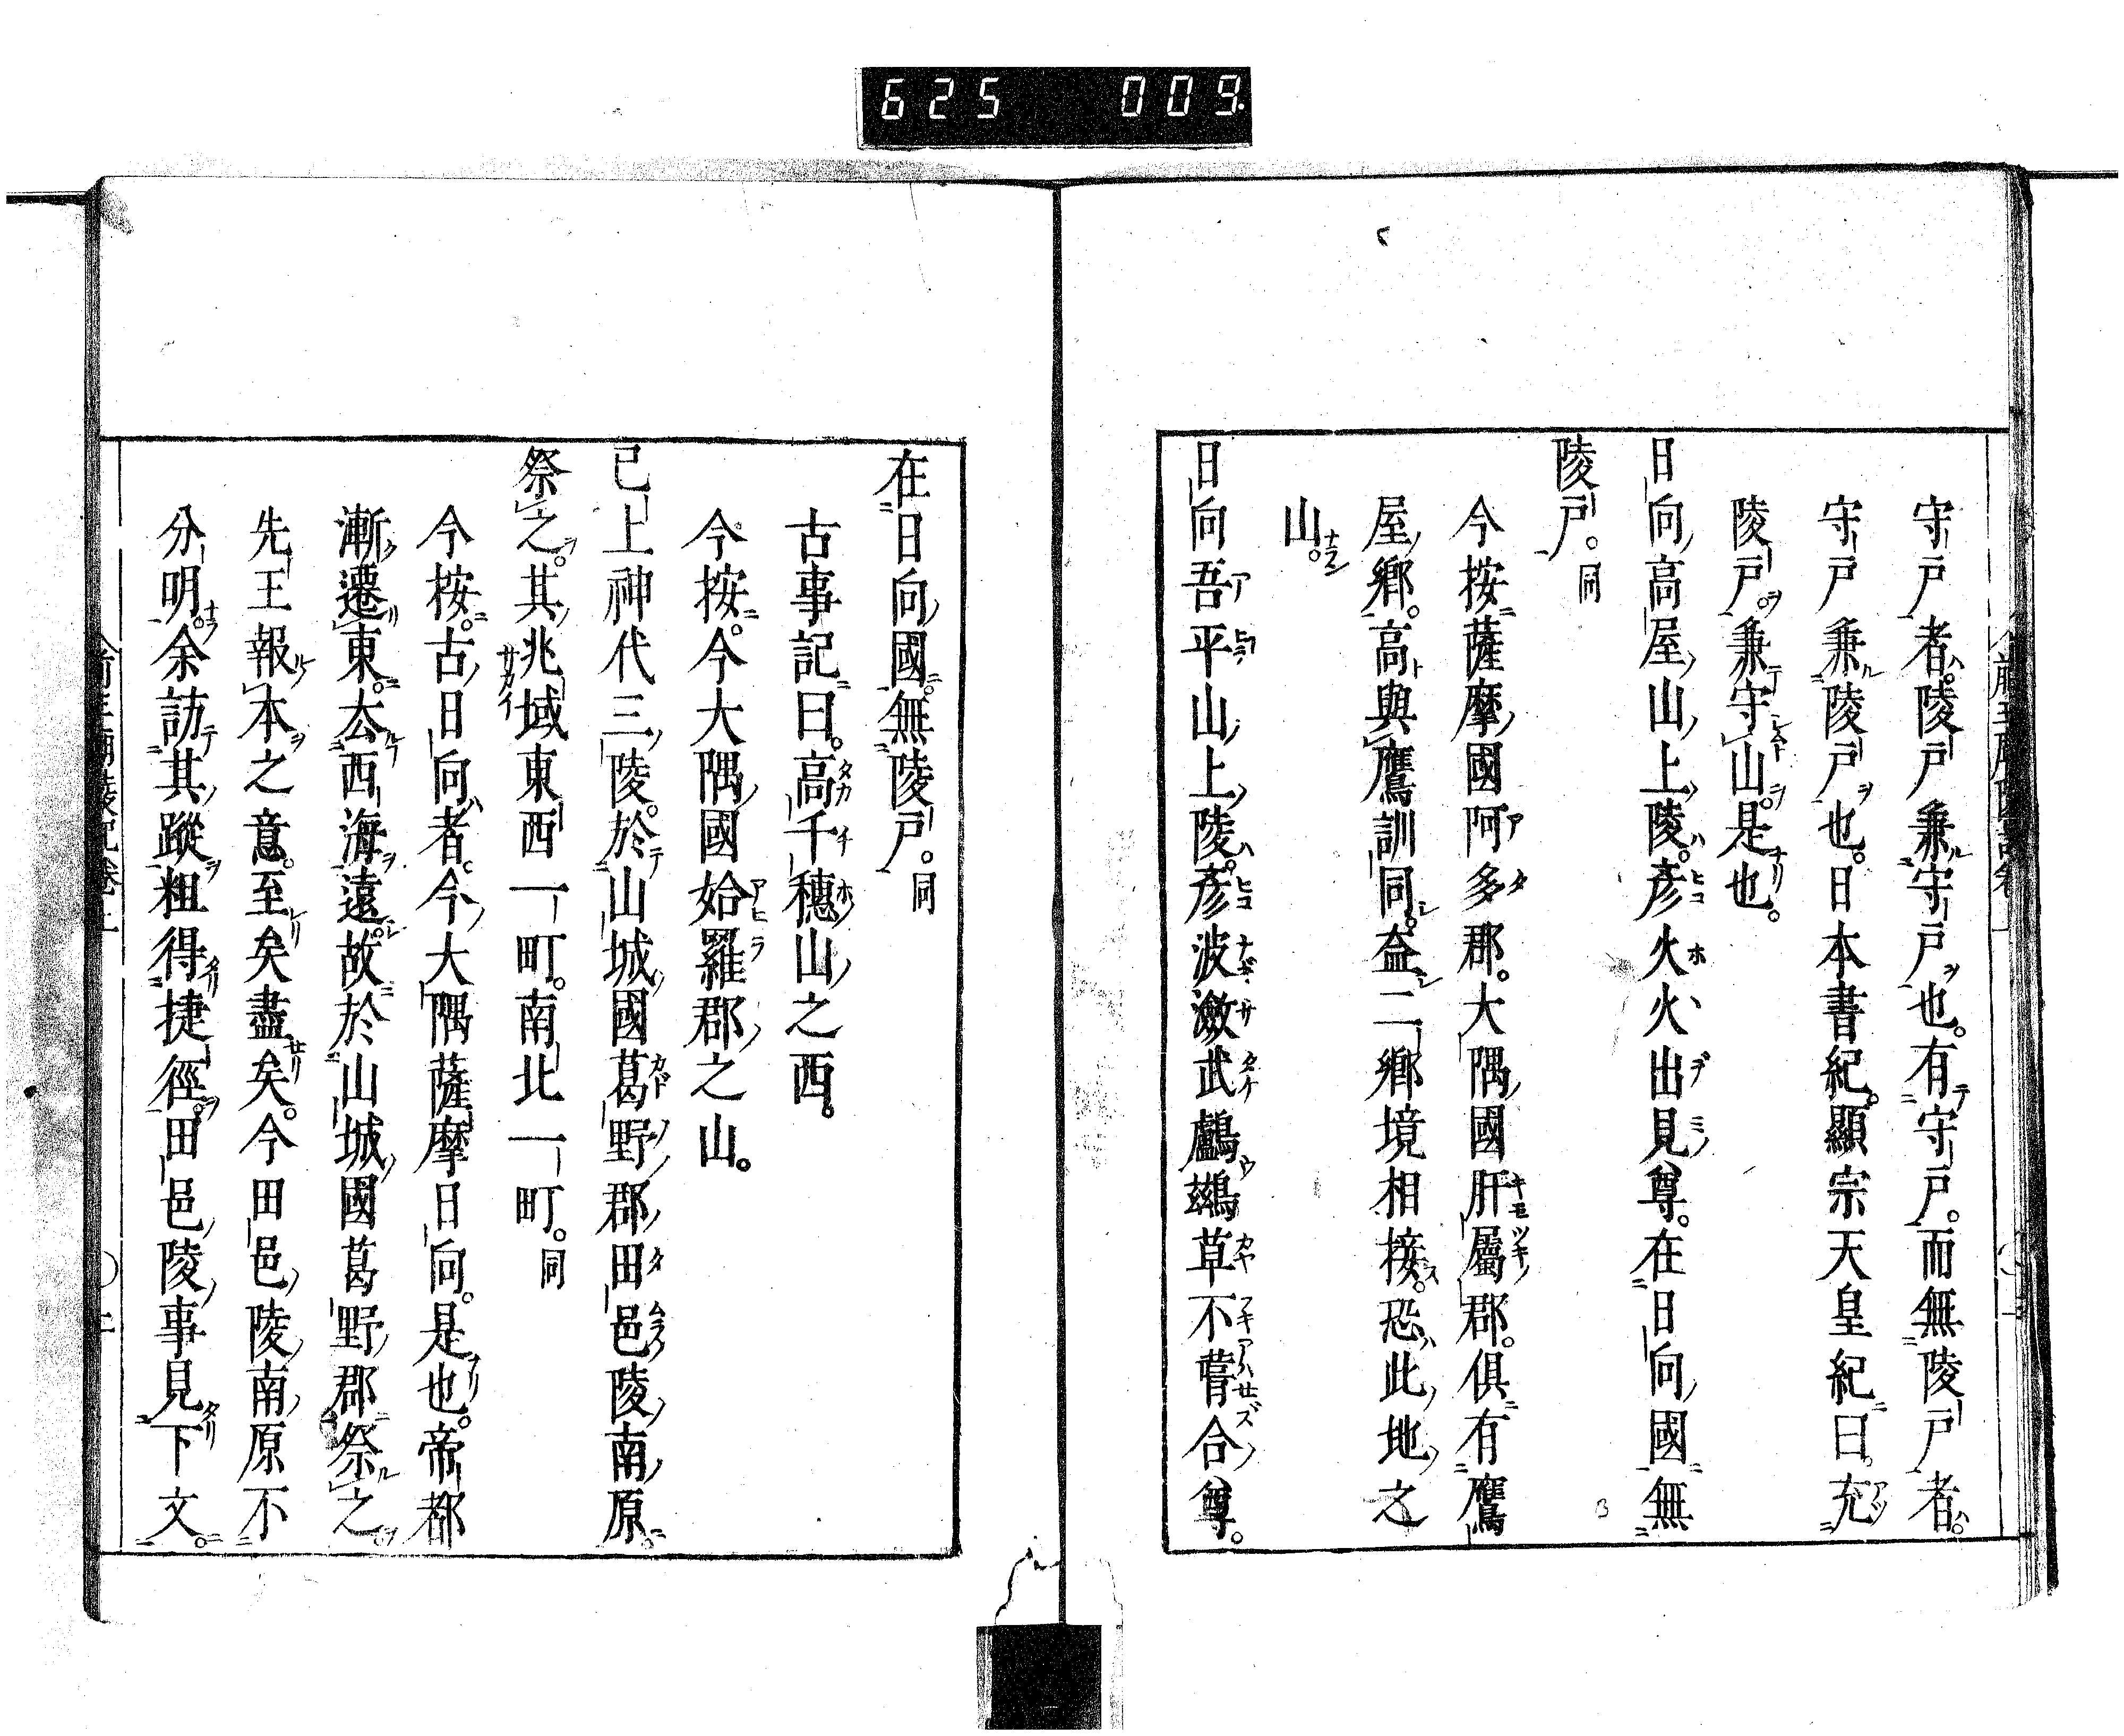 625 009
守戸者。陵戸兼守戸也。有守戸。而無陵戸者。
守戸兼陵戸也。日本書紀。顯宗天皇紀曰。充
陵戸。兼守山。是也。
日向高屋山上陵。彦火火出見尊。在日向國無
陵戸。同
今按薩摩國阿多郡。大隅國肝屬郡。俱有鷹
屋鄉。高與鷹訓同。益二鄉境相接。恐此地之
山。
日向吾平山上陵。彦波瀲武鸕鷀草不葺合尊。
在日向國。無陵戸。同
古事記曰。高千穗山之西。
今按。今大隅國姶羅郡之山。
已上神代三陵。於山城國葛野郡田邑陵南原
祭之。其兆域東西一町。南北一町。同
今按。古日向者。今大隅薩摩日向。是也。帝都
漸遷東。去西海遠。故於山城國葛野郡祭之。
先王報本之意。至矣盡矣。今田邑陵南原不
分明。余訪其蹤粗得捷徑。田邑陵事見下文。